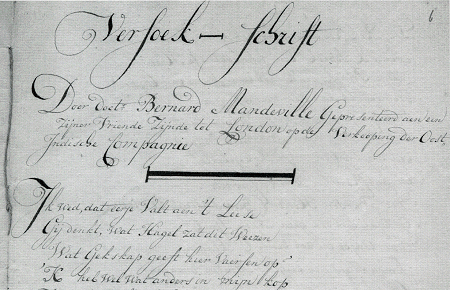 6
Versoek-Schrift
Door doctr Bernard Mandeville Gepresenteerd aen een
Zijner Vriende Zijnde tot London op de Verkooping der Oost,
Indische Compagnie
Ik wed, dat eerje Valt aen 't Leese
Gij denkt, wat Hagel zat dit Weezen
Wat Gekskap geeft hier Vaersen op
'K heb wel wat anders in mijn kop